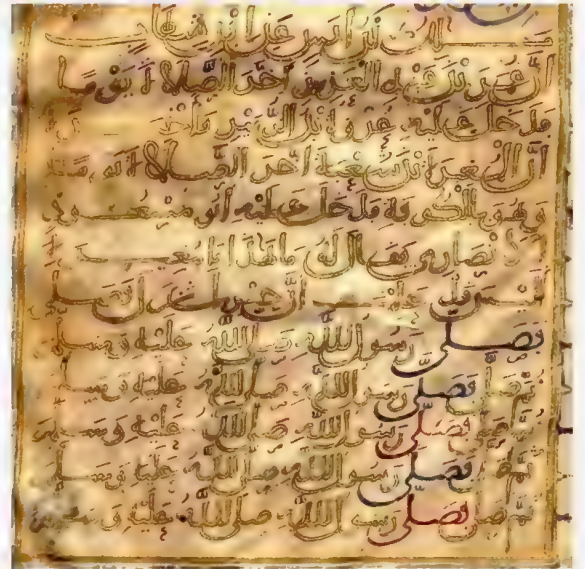 مالك ابن أنس عن ابن شهاب
أن عمر بن عبد العزيز أخر الصلاة يوما
فدخل عليه عروة ابن الزبير فأخبره
أن المغيرة ابن شعبة أخر الصلاة يوما
وهو بالكوفة فدخل عليه أبو مسعود
الانصاري فقال له ما هذا يا مغيرة
أليس قد علمت أن جبريل نزل فصلى
فصلى رسول الله صلى الله عليه وسلم
ثم صلى فصلى رسول الله صلى الله عليه وسلم
ثم صلى فصلى رسول الله صلى الله عليه وسلم
ثم صلى فصلى رسول الله صلى الله عليه وسلم
ثم صلى فصلى رسول الله صلى الله عليه وسلم